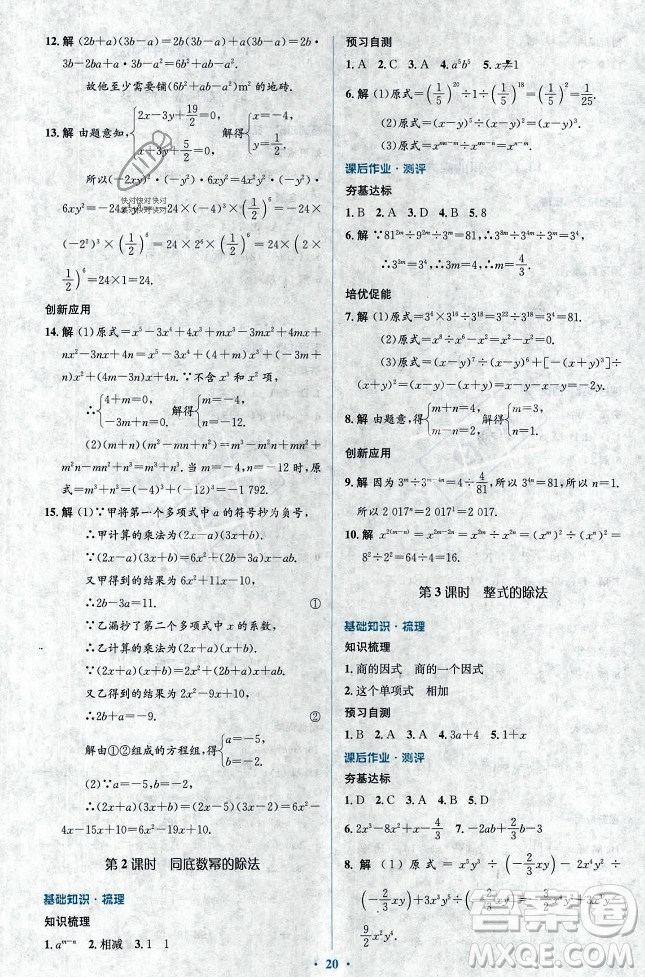 12. 解 (2b+a)(3b-a)=2b(3b-a)+a(3b-a)=2b·
3b-2ba+a·3b-a²=(6b²+ab-a²).
故他至少需要铺(6b²+ab-a²)m²的地砖.
13. 解 由题意知, {2x-3y+19/2=0, x+8y=0, 解得 {x=-4, y=1/2.
所以(-2xy)²·(-y²)·6xy²=
6xy²=-24x³y⁶=-24×(-4)³×(1/2)⁶=-24×
(-2²)³×(1/2)⁶=24×2⁶×(1/2)⁶=24×(2×
1/2)⁶=24×1=24.
创新应用
14. 解 (1)原式=x⁵-3x⁴+4x³+mx³-3mx²+4mx+
nx²-3nx+4n=x⁵-3x⁴+(4+m)x³+(-3m+
n)x²+(4m-3n)x+4n. ∵不含x³和x²的项,
∴{4+m=0, -3m+n=0, 解得{m=-4, n=-12.
(2)(m+n)(m²-mn+n²)=m³-m²n+mn²+
m²n-mn²+n³=m³+n³.当m=-4,n=-12时,原
式=m³+n³=(-4)³+(-12)³=-1 792.
15. 解 (1)∵甲将第一个多项式中a的符号抄为负号,
∴甲计算的乘法为(2x-a)(3x+b).
∴(2x-a)(3x+b)=6x²+(2b-3a)x-ab.
又甲得到的结果为6x²+11x-10,
∴2b-3a=11. ①
∵乙漏抄了第二个多项式中x的系数,
∴乙计算的乘法为(2x+a)(x+b).
∴(2x+a)(x+b)=2x²+(2b+a)x+ab.
又乙得到的结果为2x²-9x+10,
∴2b+a=-9. ②
解由①②组成的方程组,得{a=-5, b=-2.
(2)∵a=-5,b=-2,
∴(2x+a)(3x+b)=(2x-5)(3x-2)=6x²-4x-
15x+10=6x²-19x+10.
第2课时 同底数幂的除法
基础知识·梳理
知识梳理
1. aᵐ⁻ⁿ 2. 相减 3. 1 1
预习自测
1. A 2. C 3. A 4. a⁵b⁵ 5. x≠1
6. 解 (1)原式=(1/5)²⁰÷1÷(1/5)¹⁸=(1/5)²=1/25.
(2)原式=(x-y)⁵÷(x-y)³=(x-y)².
课后作业·测评
夯基达标
1. B 2. A 3. A 4. B 5. 8
6. 解 ∵81²ᵐ÷9²ᵐ÷3ᵐ=81,∴3⁸ᵐ÷3⁴ᵐ÷3ᵐ=3⁴,
∴3³ᵐ=3⁴,∴3m=4,∴m=4/3.
培优促能
7. 解 (1)原式=3⁴×3¹²÷3¹⁰÷3²=3⁴=81.
(2)原式=3⁶×3⁸÷3¹⁰=3⁴=81.
(3)原式=(x-y)⁷÷(x-y)⁶+[-(x+y)³]÷
(x+y)²=(x-y)-(x+y)=x-y-x-y=-2y.
8. 解 由题意,得{m+n=4, m-n=2, 解得{m=3, n=1.
创新应用
9. 解 因为3ᵐ÷3ⁿ=4÷4/81=81,所以4n=4,所以n=1.
所以2 017ⁿ=2 017¹=2 017.
10. 解 x²⁽ᵐ⁻ⁿ⁾=x²ᵐ⁻²ⁿ=x²ᵐ÷x²ⁿ=(xᵐ)²÷(xⁿ)²=
8²÷2²=64÷4=16.
第3课时 整式的除法
基础知识·梳理
知识梳理
1. 商的因式 商的一个因式
2. 这个单项式 相加
预习自测
1. B 2. A 3. B 4. 3a+4 5. 1+x
课后作业·测评
夯基达标
1. D 2. D 3. A 4. C 5. A
6. 2x³-8x²+x-4/3 7. -2ab+2/3b-3
8. 解 (1)原式=-2/3x³y²÷(-2/3xy)+2x²y÷
(-2/3xy)-2/3xy÷(-2/3xy)=x²y-3x+1.
20
答案圈